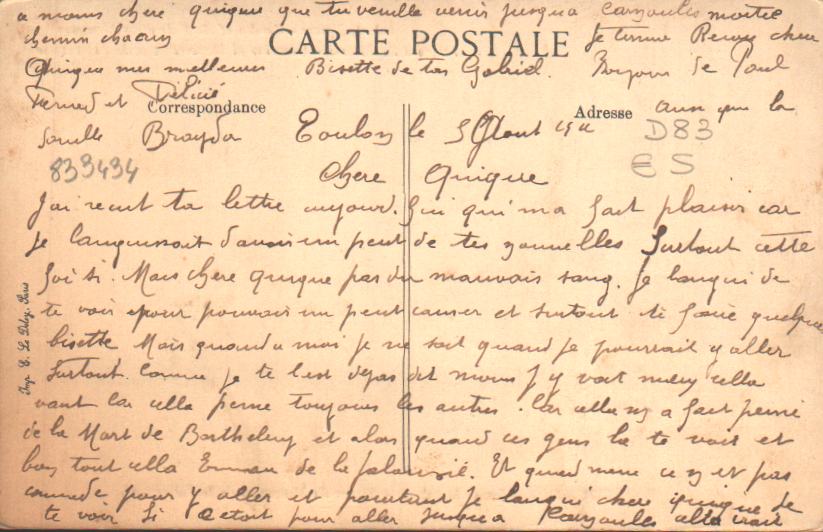 a moins chere quique que tu veuille venir jusqua Carnoules moitie
chemin chacun
CARTE POSTALE
Je termine Recois chere
Quique mes meilleures Bisette de ton Gabriel. Bonjour de Paul
Fernand et Félicié
Correspondance
Adresse
aussi que la
famille Brayda
Toulon le 5 Aout
D83
833434
CS
Chere Quique
J'ai recut ta lettre aujourd-hui qui ma fait plaisir car
je languissait davoir un peut de tes nouvelles Surtout cette
foi si. Mais chere quique pas du mauvais sang. Je langui de
te voir pour pouvoir un peut causer et surtout te faire quelques
bisette Mais quand a moi je ne sait quand je pourrait y aller
Surtout comme je te l'est dejas dit nous J y vait mais cella
vaut car cella peine toujours les autres. Car cella m a fait peine
de la Mort de Barthelemy et alors quand ces gens la te voit et
bon tout cella de la jalousié. Et quand meme ce n et pas
commode pour y aller et pourtant Je langui chere quique de
te voir Si cetait pour aller jusqua Carnoules cella irait
Imp. E. Le Deley, Paris